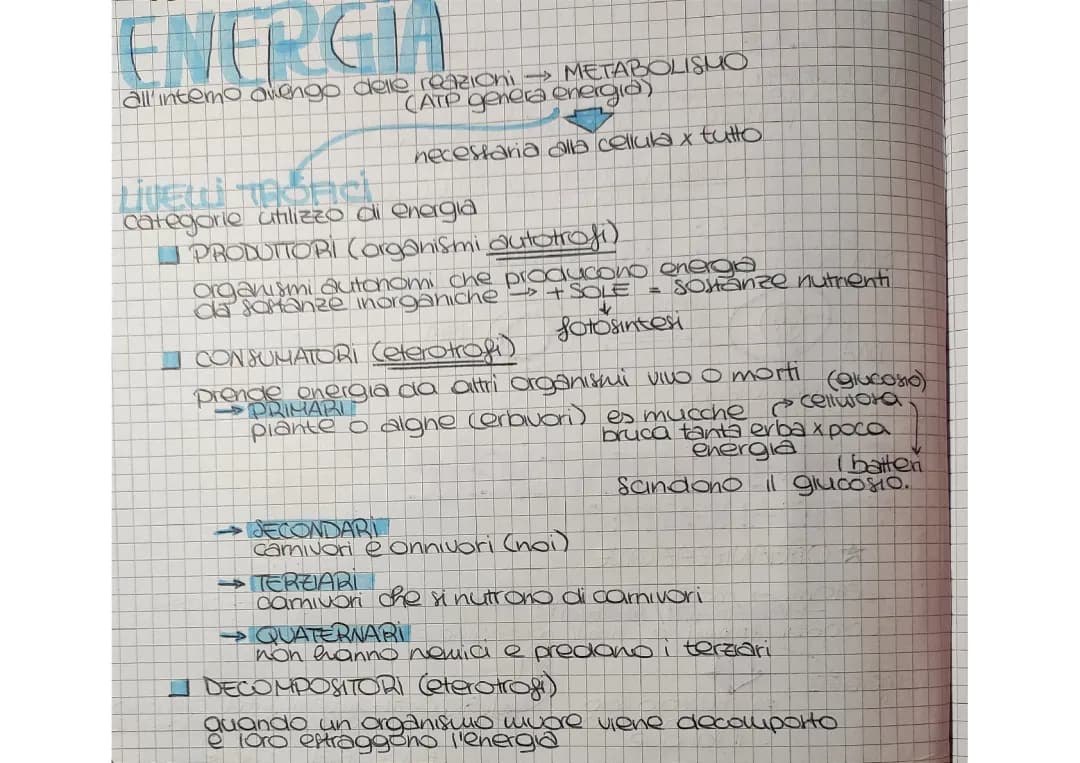 ENERGIA
all'interno avengo delle reazioni → METABOLISMO
(ATP genera energia)
necessaria alla cellula x tutto
LIVELLI TROFICI
categorie utilizzo di energia
PRODUTTORI (organismi autotrofi)
organismi autonomi che producono energia
da sostanze inorganiche → + SOLE = sostanze nutrienti
↓
fotosintesi
CONSUMATORI (eterotrofi)
prende energia da altri organismi vivo o morti (glucosio)
→ PRIMARI → cellulosa
piante o alghe (erbivori) es mucche
bruca tanta erba x poca
energia
I batteri
scindono il glucosio.
→ SECONDARI
carnivori e onnivori (noi)
→ TERZIARI
carnivori che si nutrono di carnivori
→ QUATERNARI
non hanno nemici e predano i terziari
DECOMPOSITORI (eterotrofi)
quando un organismo muore viene decomposto
e loro estraggono l'energia